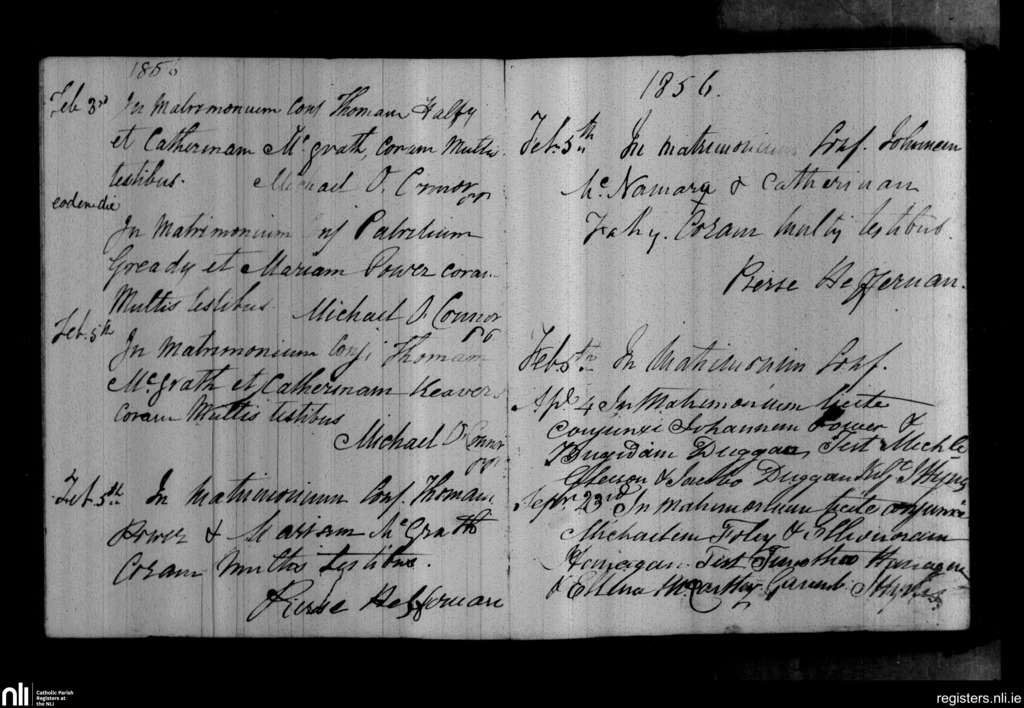 1856
Feb 3rd In Matrimonium Conj Thomam Halfy
et Catherinam McGrath, coram Multis
testibus. Michael O. Connor
eodem die
In Matrimonium Conj Patritium
Gready et Mariam Power coram
Multis testibus. Michael O Connor
PP
Feb. 5th
In Matrimonium Conj Thomam
McGrath et Catherinam Keavers
coram Multis testibus
Michael O Connor
Feb. 5th In Matrimonium Conj. Thomam
Power & Mariam McGrath
Coram multis testibus.
Pierse Heffernan
1856.
Feb. 5th In matrimonium Conj. Johannem
McNamara & Catherinam
Fahy. Coram multis testibus.
Pierse Heffernan.
Feb 5th In Matrimonium Conj.
Apl. 4 In Matrimonium licite
conjunxi Johannem Power &
Brigidam Duggan Test Michle
& Jacobo Duggan
Sepr. 23rd In Matrimonium licite conjunxi
Michaelem Foley & Ellenoram
Test Timotheo
& Ellena McCarthy
nli Catholic Parish
Registers at
the NLI
registers.nli.ie